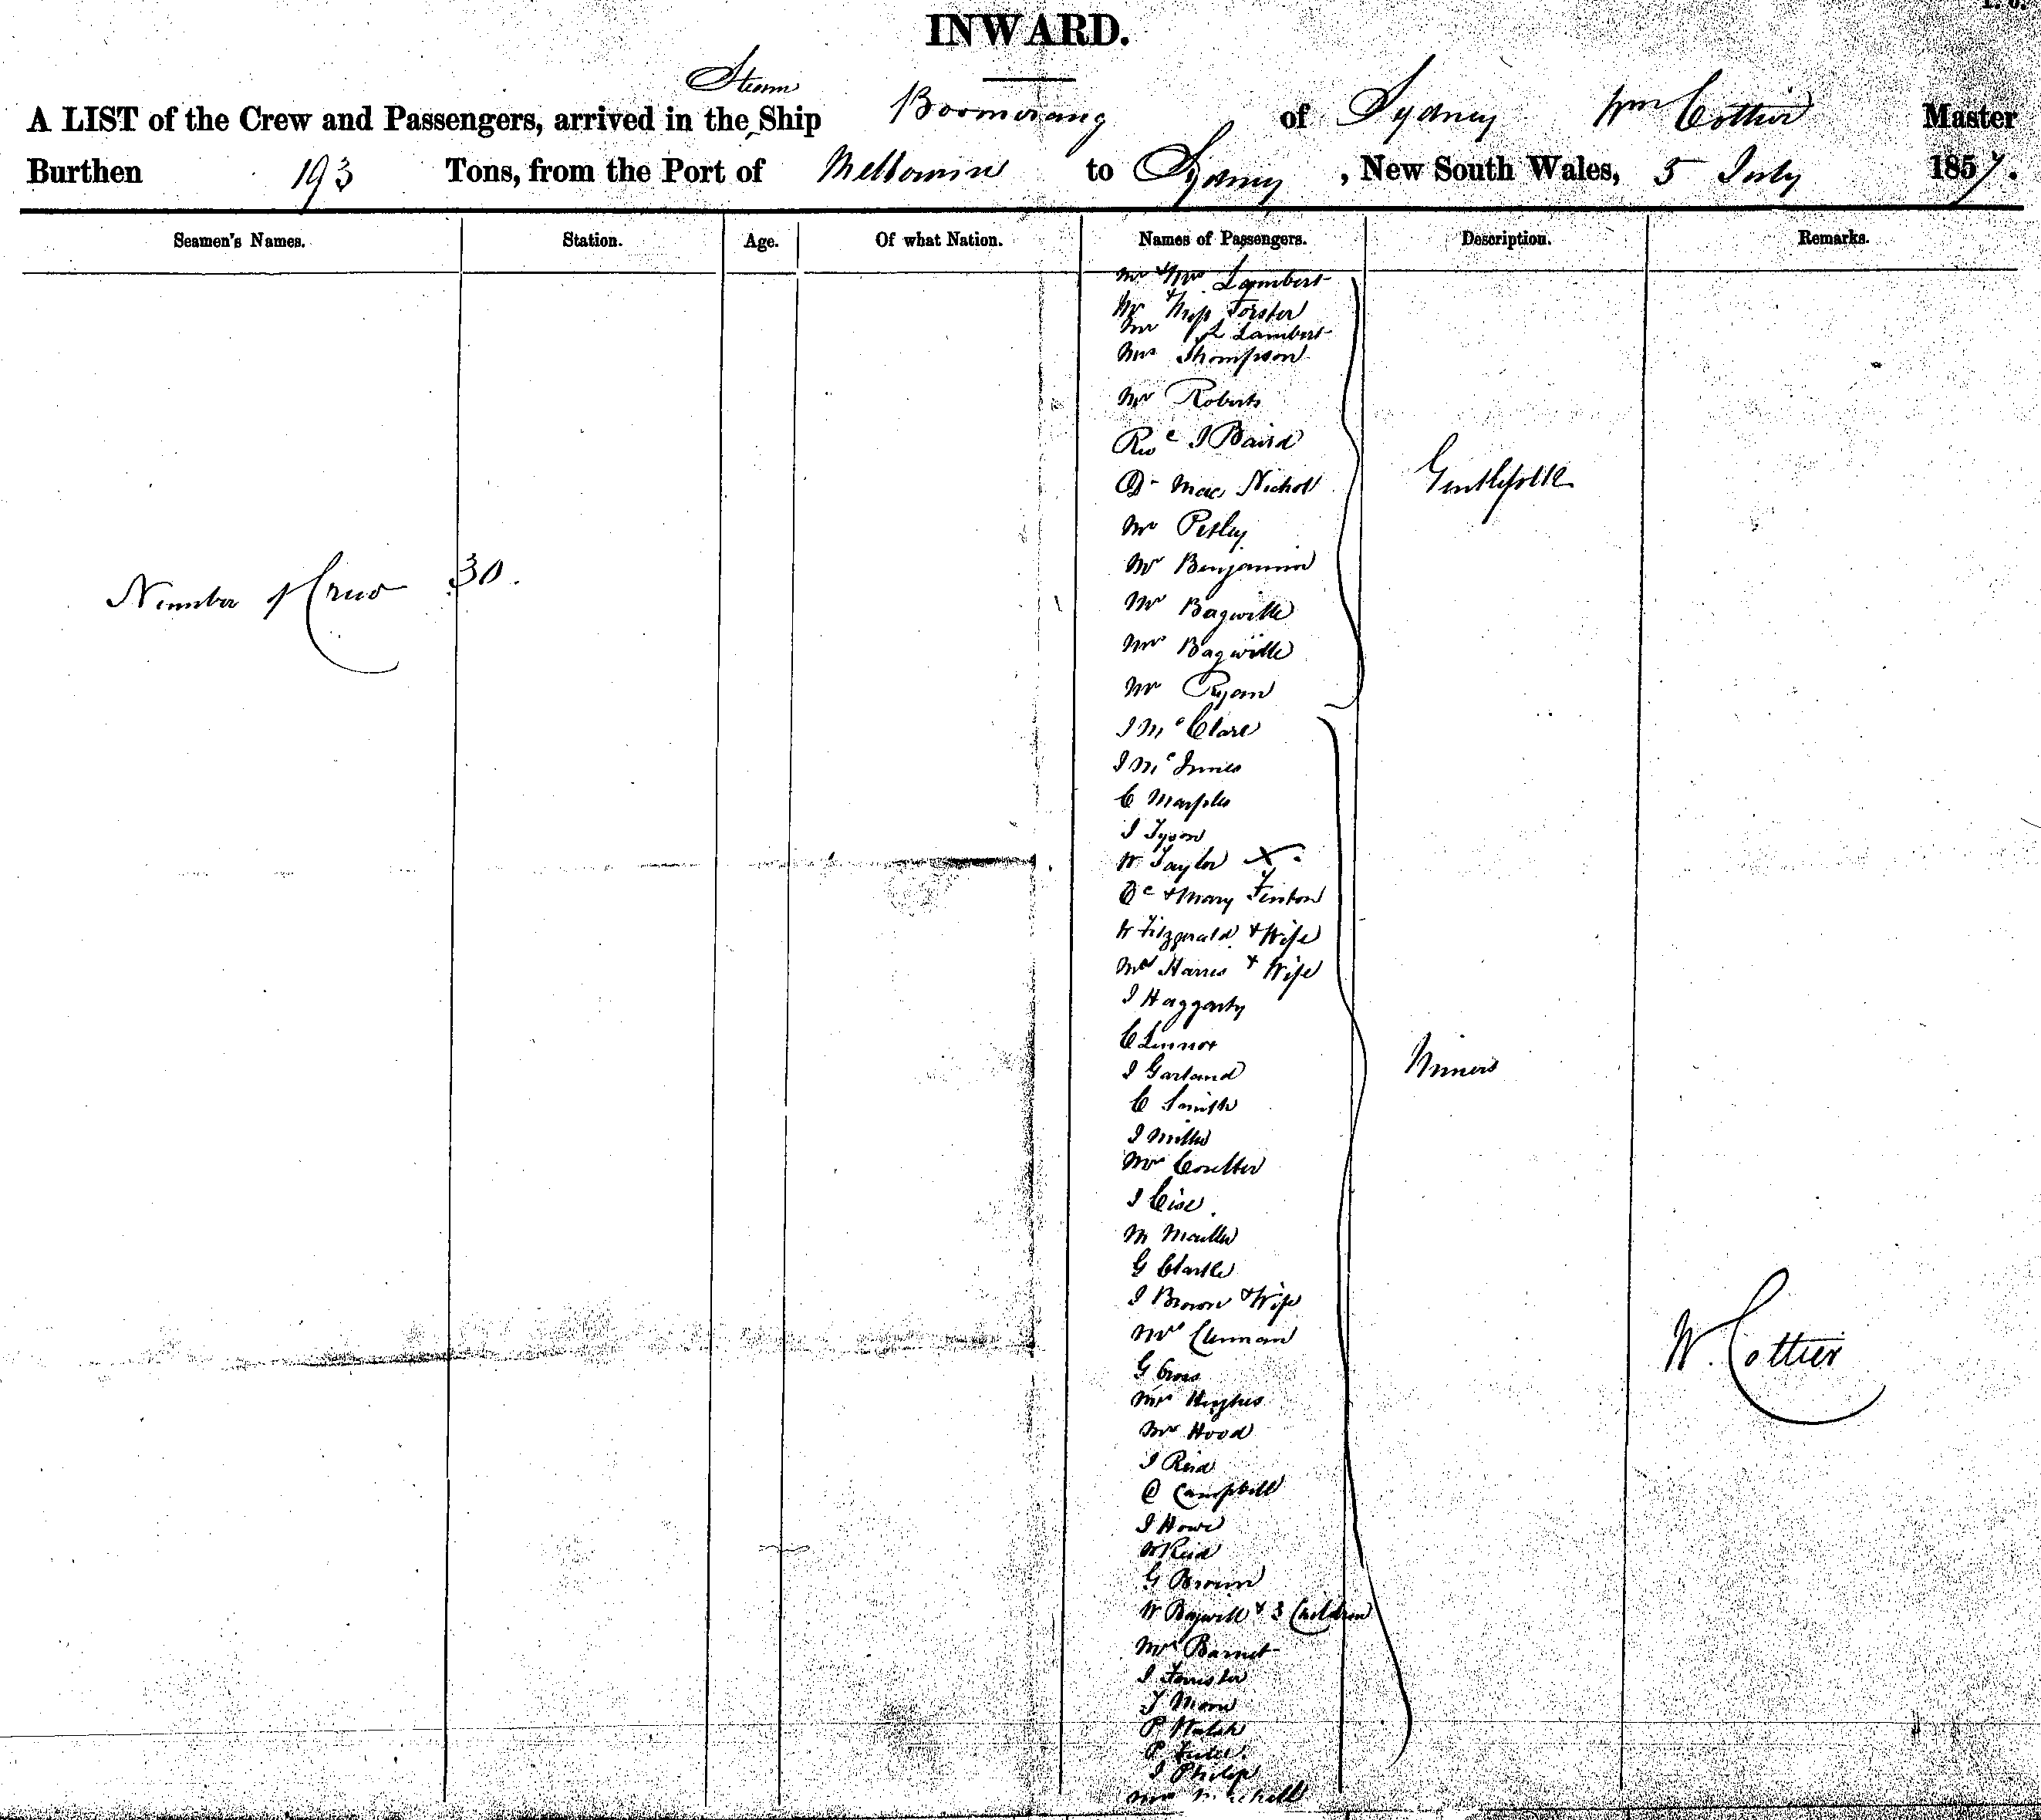 INWARD.
Steam
A LIST of the Crew and Passengers, arrived in the Ship Boomerang of Sydney Wm Cottier Master
Burthen 193 Tons, from the Port of Melbourne to Sydney, New South Wales, 5 July 1857.
Seamen's Names. Station. Age. Of what Nation. Names of Passengers. Description. Remarks.
Mr & Mrs Lambert
Mr & Miss Forster
Lambert
Mrs Thompson
Mr Roberts
Revd J Baird
Dr Mac Nicholl
Gentlefolk
Mr Petley
Mr Benjamin
Number of Crew 30.
Mr Bagwille
Mrs Bagwille
Mr Ryan
J McClare
J McInnes
C Marples
J Tyson
W Taylor X
& Mary Fenton
W Fitzgerald & Wife
Harris & Wife
J Haggarty
C Lennox
J Garland
Miners
C Smith
J Miller
Mrs Coulter
J
M
G Clarke
J Brown & Wife
Clenman
G Cross
Mrs Hughes
W. Cottier
Mr Hood
J Reid
C Campbell
J Howe
W Reid
G Brown
W Bagwill & 3 Children
Barnet
J Forrister
Moon
P Walsh
P
J Philip